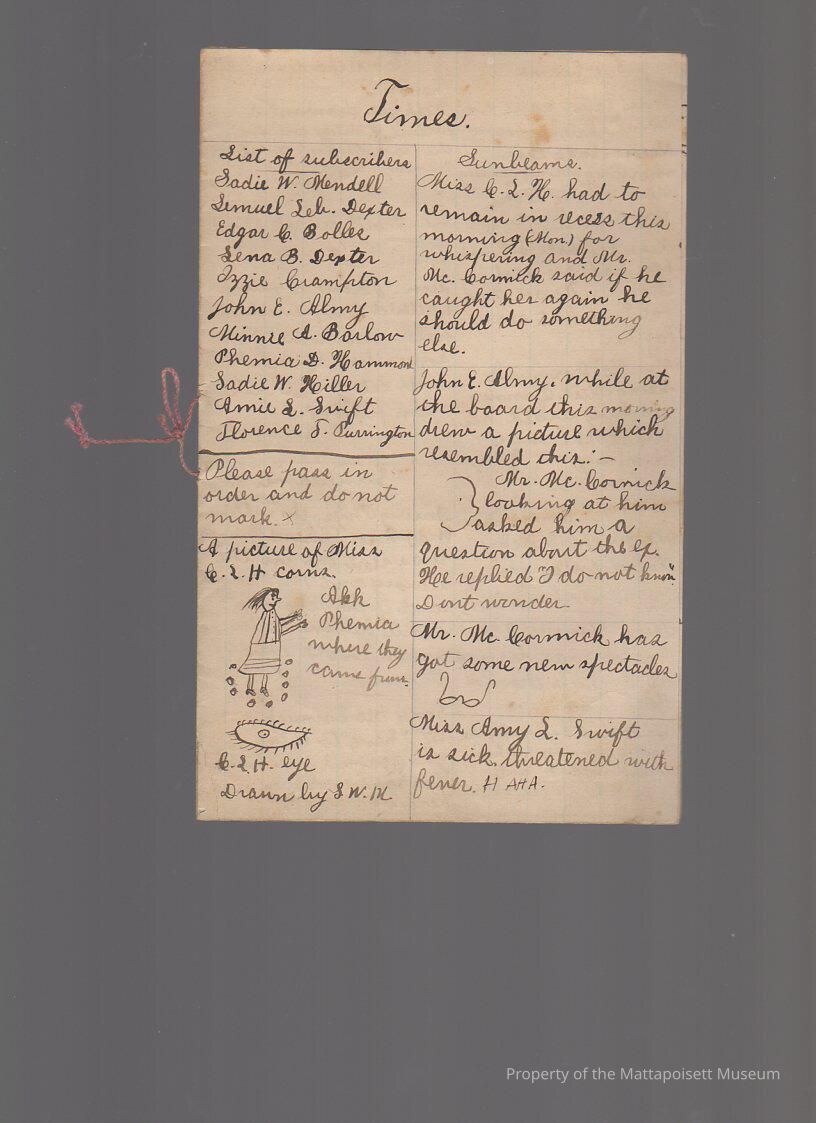 Times.
List of subscribers
Sadie W. Mendell
Lemuel Leb. Dexter
Edgar C. Bolles
Lena B. Dexter
Izzie Crampton
John E. Almy
Minnie A. Barlow
Phemia D. Hammond
Sadie W. Hiller
Amie L. Swift
Florence T. Purrington
Please pass in
order and do not
mark. X
A picture of Miss
C. L. H corns.
Ask
Phemia
where they
came from.
C. L. H. eye
Drawn by S. W. M.
Sunbeams.
Miss C. L. H. had to
remain in recess this
morning (Mon.) for
whispering and Mr.
Mc. Cormick said if he
caught her again he
should do something
else.
John E. Almy, while at
the board this morning
drew a picture which
resembled this: —
Mr. Mc. Cormick
looking at him
asked him a
question about the ex.
He replied "I do not know".
Dont wonder.
Mr. Mc. Cormick has
got some new spectacles
Miss Amy L. Swift
is sick, threatened with
fever. H AHA.
Property of the Mattapoisett Museum